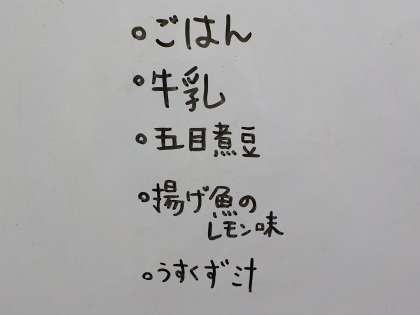 ・ごはん
・牛乳
・五目煮豆
・揚げ魚の
レモン味
・うすくず汁